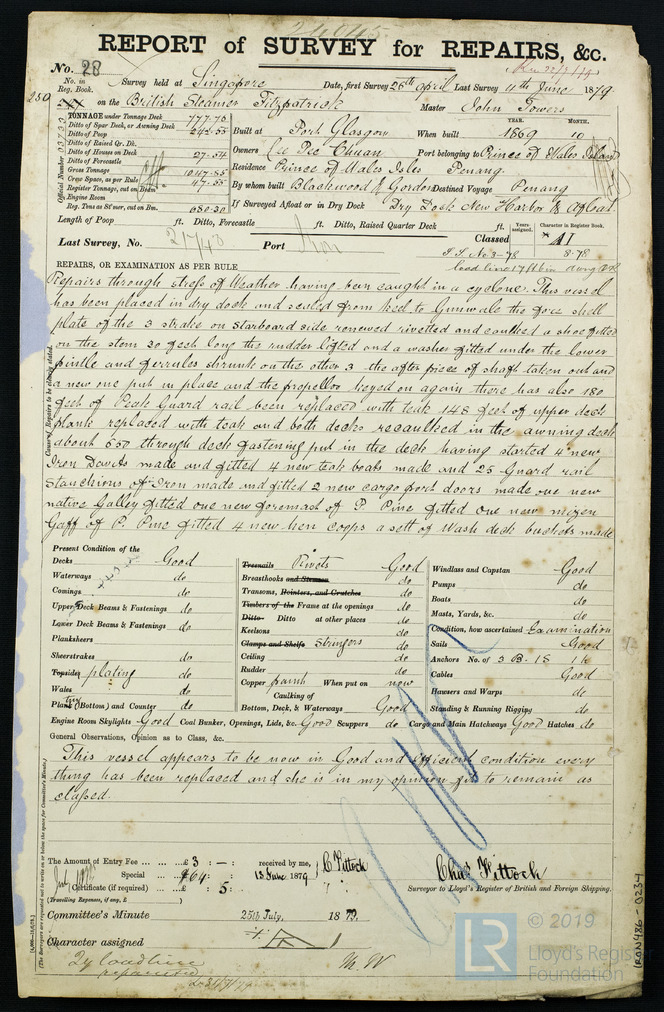 REPORT of SURVEY for REPAIRS, &c.
No. 28
No. in Reg. Book. Survey held at Singapore Date, first Survey 26th April Last Survey 11th June 1879
250 on the British Steamer Fitzpatrick Master John Towers
TONNAGE under Tonnage Deck 777.75
Ditto of Spar Deck, or Awning Deck
Ditto of Poop 242.55
Ditto of Raised Qr. Dk.
Ditto of Houses on Deck 27.54
Ditto of Forecastle
Gross Tonnage 1047.85
Crew Space, as per Rule 47.55
Register Tonnage, cut on Beam
Engine Room
Reg. Tons as Str mer, cut on Bm. 680.30
Official Number
YEAR. MONTH.
Built at Port Glasgow When built 1869 10
Owners Chuan Port belonging to Prince of Wales Island
Residence Prince of Wales Isles Penang
By whom built Blackwood & Gordon Destined Voyage Penang
If Surveyed Afloat or in Dry Dock Dry Dock New Harbor & Afloat
Length of Poop ft. Ditto, Forecastle ft. Ditto, Raised Quarter Deck ft.
Years assigned. Character in Register Book.
Last Survey, No. Port Classed A1
S.S. No 3-78 8-78
load line 17 ft 6 in awng dk
REPAIRS, OR EXAMINATION AS PER RULE
Causes of Repairs to be clearly stated.
Repairs through stress of Weather having been caught in a cyclone. This vessel
has been placed in dry dock and scaled from keel to Gunwale the fore shell
plate of the 3 strake on Starboard side renewed rivetted and caulked a shoe fitted
on the stem 20 feet long the rudder lifted and a washer fitted under the lower
pintle and ferrules shrunk on the other 3 the after piece of shaft taken out and
a new one put in place and the propellor keyed on again there has also 180
feet of Peak Guard rail been replaced with teak 148 feet of upper deck
plank replaced with teak and both decks recaulked in the awning deck
about 650 through deck fastening put in the deck having started 4 new
Iron Davits made and fitted 4 new teak boats made and 25 Guard rail
Stanchions of Iron made and fitted 2 new cargo port doors made one new
native Galley fitted one new foremast of P. Pine fitted one new mizen
Gaff of P. Pine fitted 4 new hen coops a sett of Wash deck buckets made
Present Condition of the
Decks Good
Waterways do
Comings do
Upper Deck Beams & Fastenings do
Lower Deck Beams & Fastenings do
Planksheers
Sheerstrakes do
Topsides plating do
Wales do
Plank (Bottom) and Counter do
Treenails Rivets Good
Breasthooks and Stemson do
Transoms, Pointers, and Crutches do
Timbers of the Frame at the openings do
Ditto Ditto at other places do
Keelsons do
Clamps and Shelfs Stringers do
Ceiling do
Rudder do
Copper paint When put on now
Caulking of
Bottom, Deck, & Waterways Good
Windlass and Capstan Good
Pumps do
Boats do
Masts, Yards, &c. do
Condition, how ascertained Examination
Sails Good
Anchors No. of 3 B. 1 S 1 K
Cables Good
Hawsers and Warps do
Standing & Running Rigging do
Engine Room Skylights Good Coal Bunker, Openings, Lids, &c. Good Scuppers do Cargo and Main Hatchways Good Hatches do
General Observations, Opinion as to Class, &c.
This vessel appears to be now in Good and Efficient condition every
thing has been replaced and she is in my opinion fit to remain as
classed.
The Amount of Entry Fee £ 3 : – : received by me, C Pittock
Special £ 64 13 June 1879
Certificate (if required) £ : 5 :
(Travelling Expenses, if any, £ )
Chas Pittock
Surveyor to Lloyd's Register of British and Foreign Shipping.
Committee's Minute 25th July, 1879.
Character assigned
M. W
IRON486-0234
© 2019
Lloyd's Register
Foundation
LR